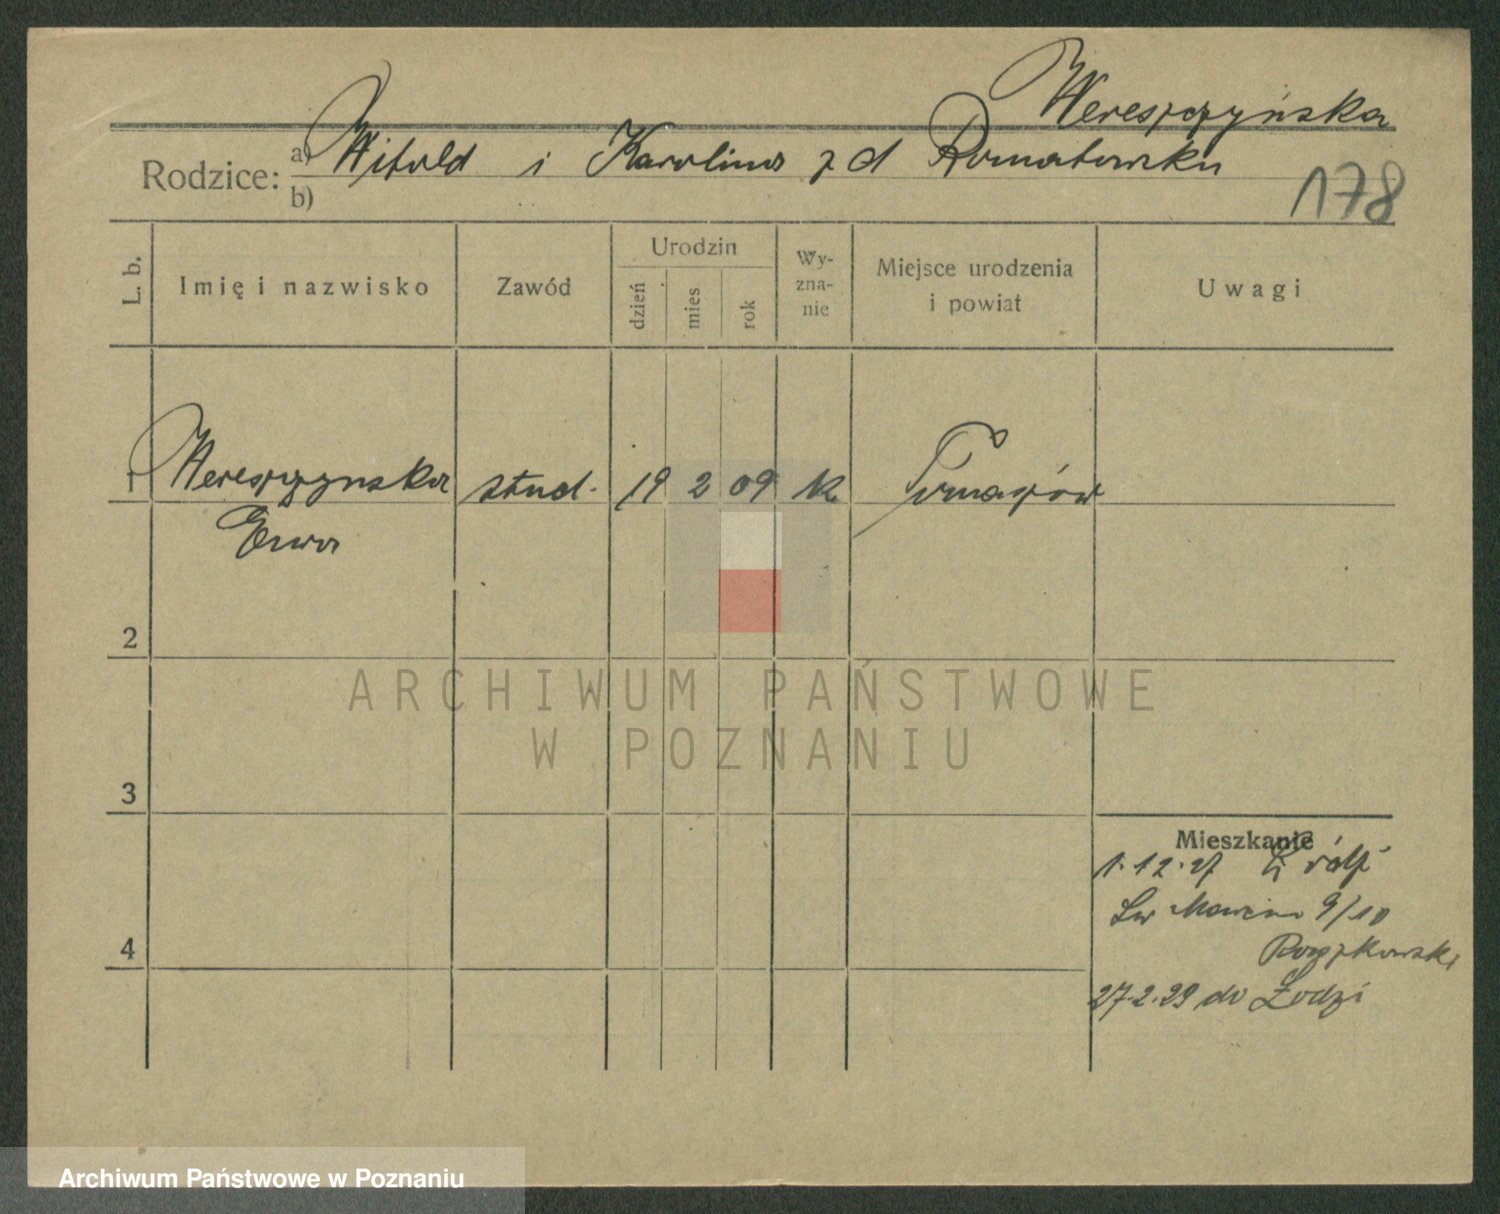 Wereszczyńska
Rodzice: a) Witold i Karolina z d Romatowska
b)
178
L. b. Imię i nazwisko Zawód Urodzin dzień mies rok Wyznanie Miejsce urodzenia i powiat Uwagi
1 Wereszczynska stud. 19 2 09 k Tomaszów
Ewa
2
ARCHIWUM PAŃSTWOWE
W POZNANIU
3
Mieszkanie
1.12.27 Łódź
Św Marcin 9/10
4
Roszkowski
27.2.29 do Łodzi
Archiwum Państwowe w Poznaniu